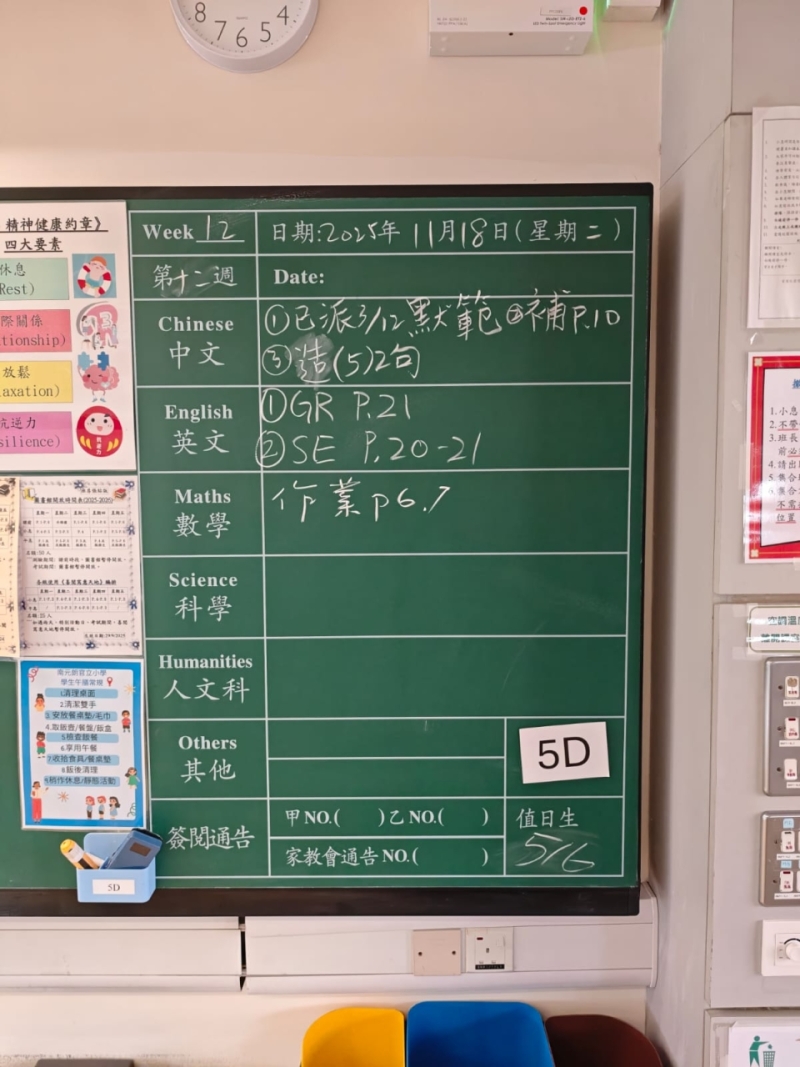 8 7 6 5 4
精神健康約章》
四大要素
休息
Rest)
際關係
tionship)
放鬆
axation)
抗逆力
silience)
Week 12
日期:2025年 11月18日(星期二)
第十二週
Date:
Chinese
中文
①已派3/12默範②補P.10
③造(5)2句
English
英文
①GR P.21
②SE P.20-21
Maths
數學
作業p6.7
Science
科學
Humanities
人文科
Others
其他
5D
簽閱通告
甲NO.( )乙NO.( )
家教會通告NO.( )
值日生
5/6
學生午膳常規
1.清理桌面
2.清潔雙手
3.安放餐桌墊/毛巾
4.取飯壺/餐盤/飯盒
5.檢查飯餐
6.享用午餐
7.收拾食具/餐桌墊
8.飯後清理
5D
1.小息
2.不帶
3.班長
前必
4.請出
5.集合
6.集合
不需
位置